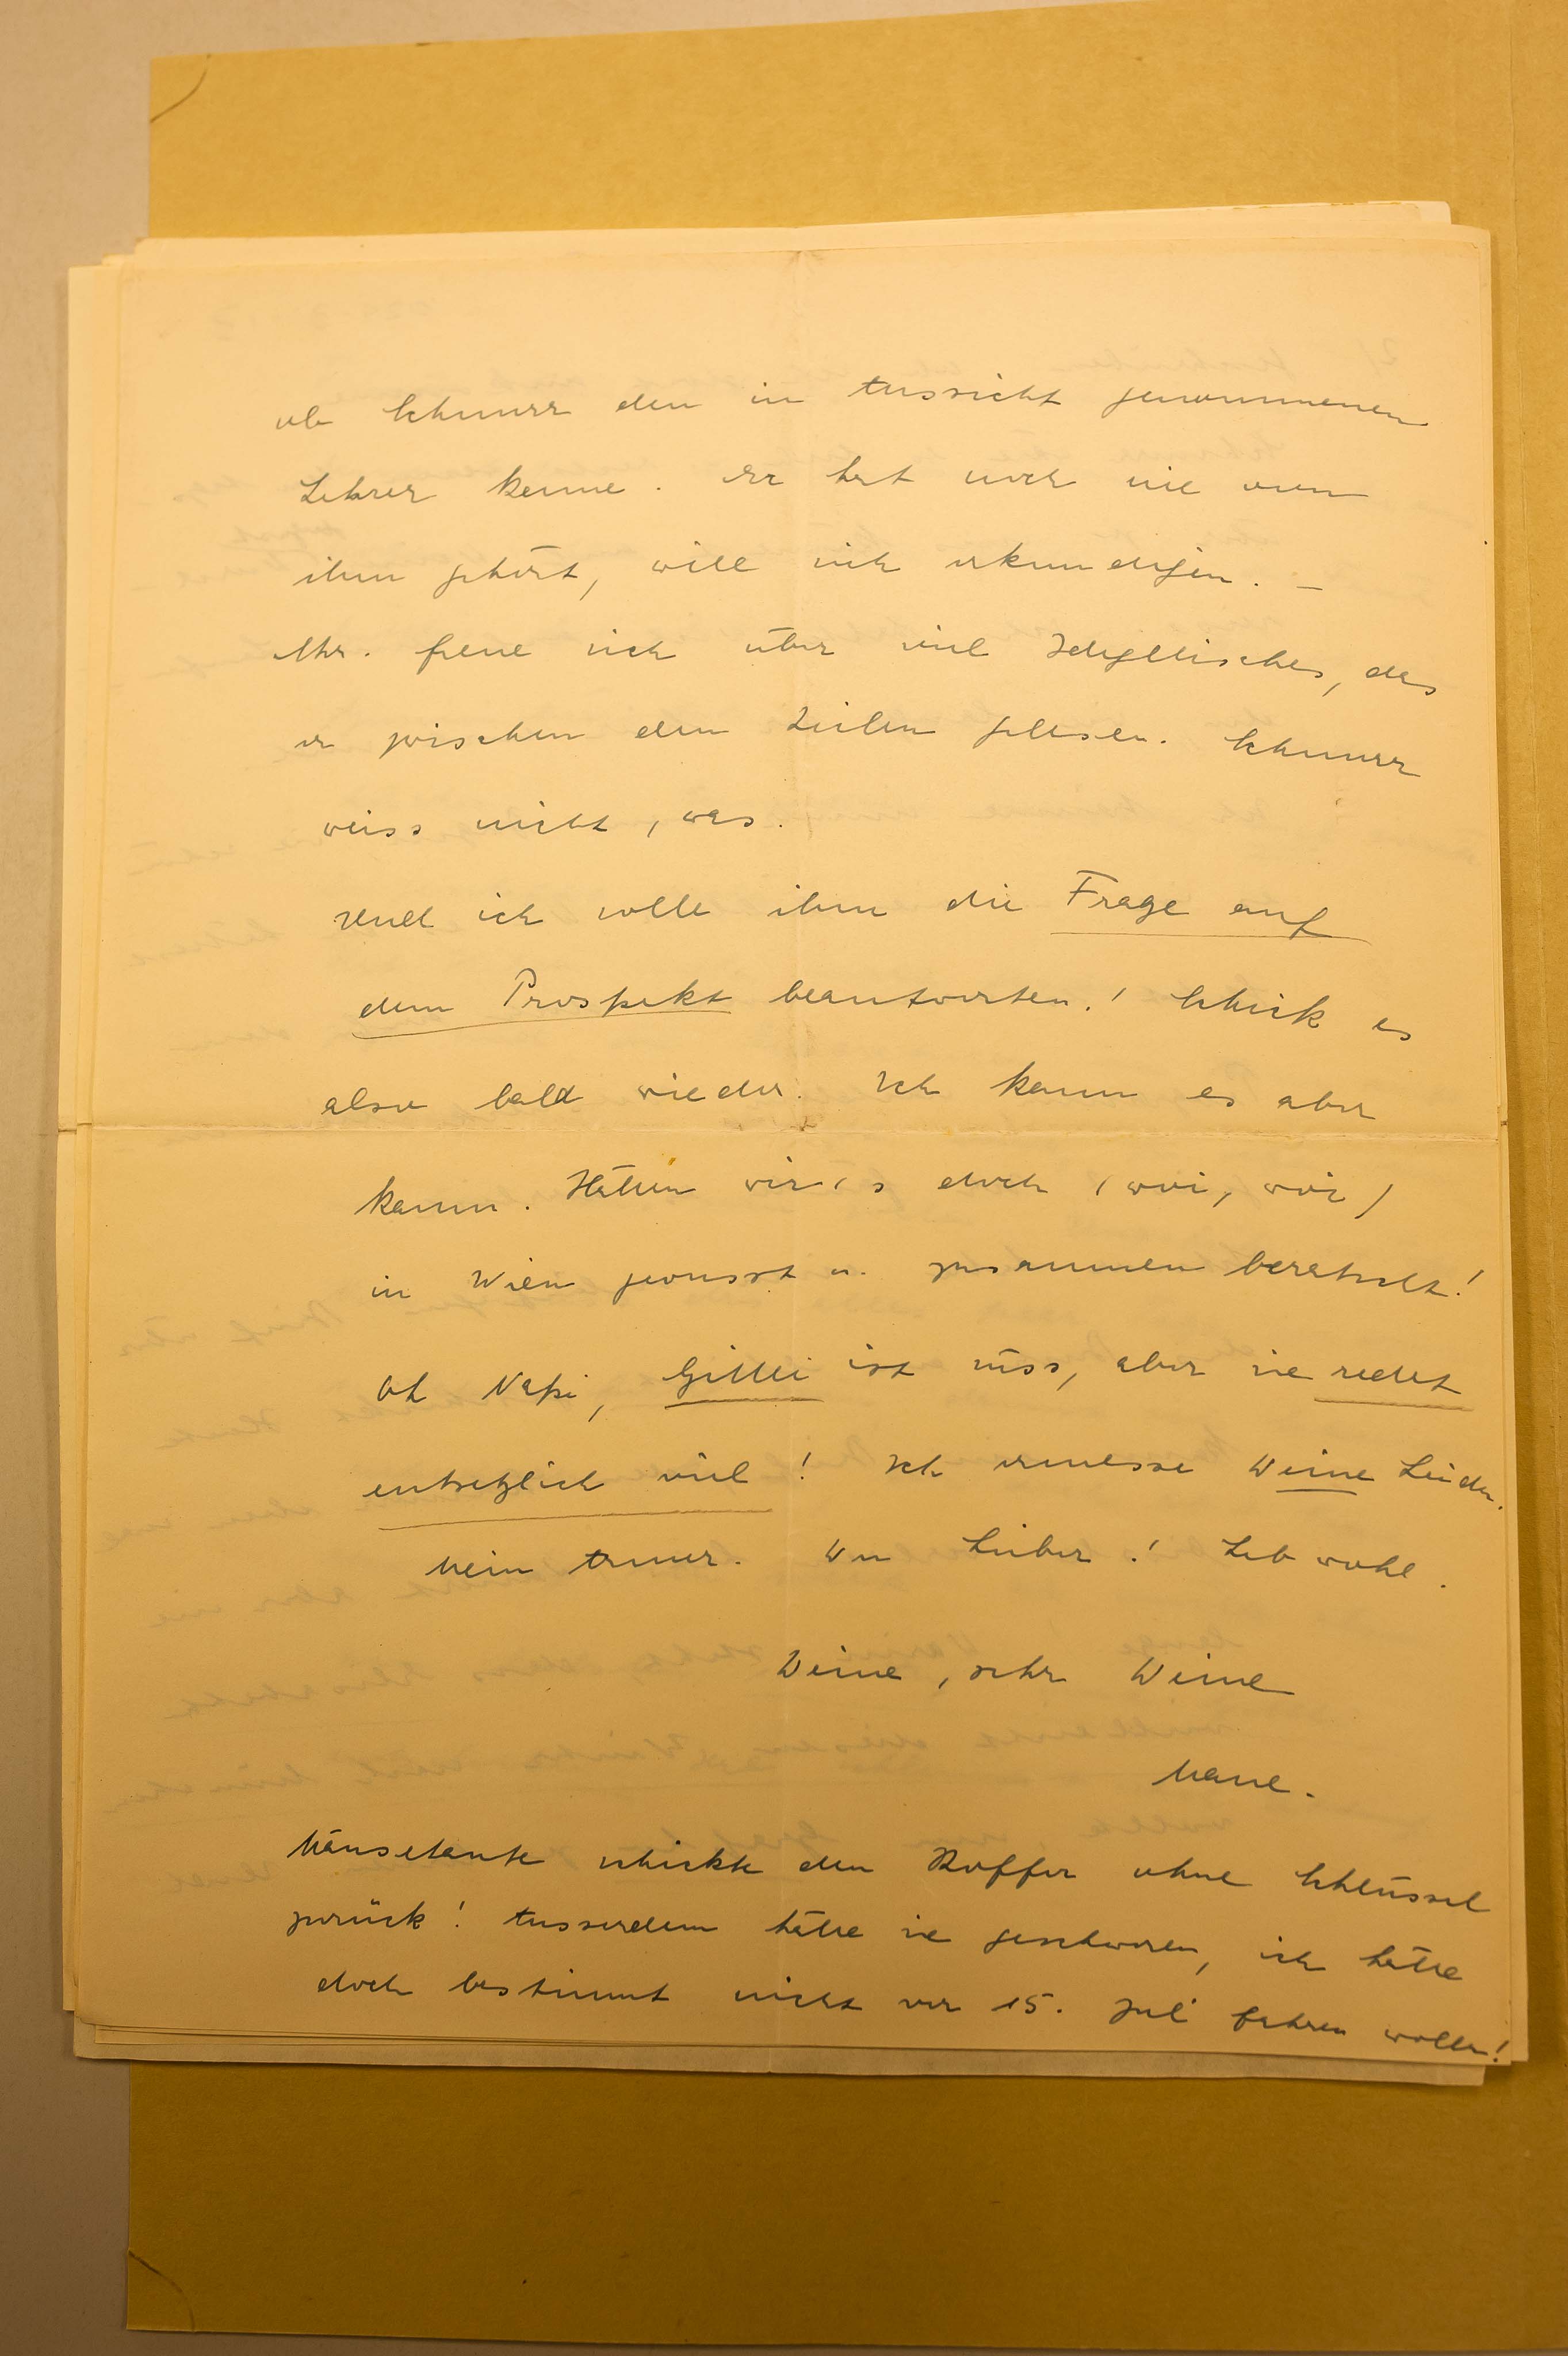 ob Schnurr den in Aussicht genommenen
Lehrer kenne. Er hat noch nie von
ihm gehört, will sich erkundigen. –
Chr. freue sich über viel Idyllisches, das
er zwischen den Zeilen gelesen. Schnurr
weiss nicht, was.
Und ich solle ihm die Frage auf
dem Prospekt beantworten! Schick es
also bald wieder. Ich kann es aber
kaum. Hätten wir's doch (woi, woi)
in Wien gewusst u. zusammen beratselt!
Oh Napi, Gitti ist süss, aber sie redet
entsetzlich viel! Ich ermesse Deine Leiden.
Mein Armer. Du Lieber! Leb wohl.
Deine, sehr Deine
Mäusetante schickte den Koffer ohne Schlüssel
zurück! Ausserdem hätte sie geschworen, ich hätte
doch bestimmt nicht vor 15. Juli fahren wollen!